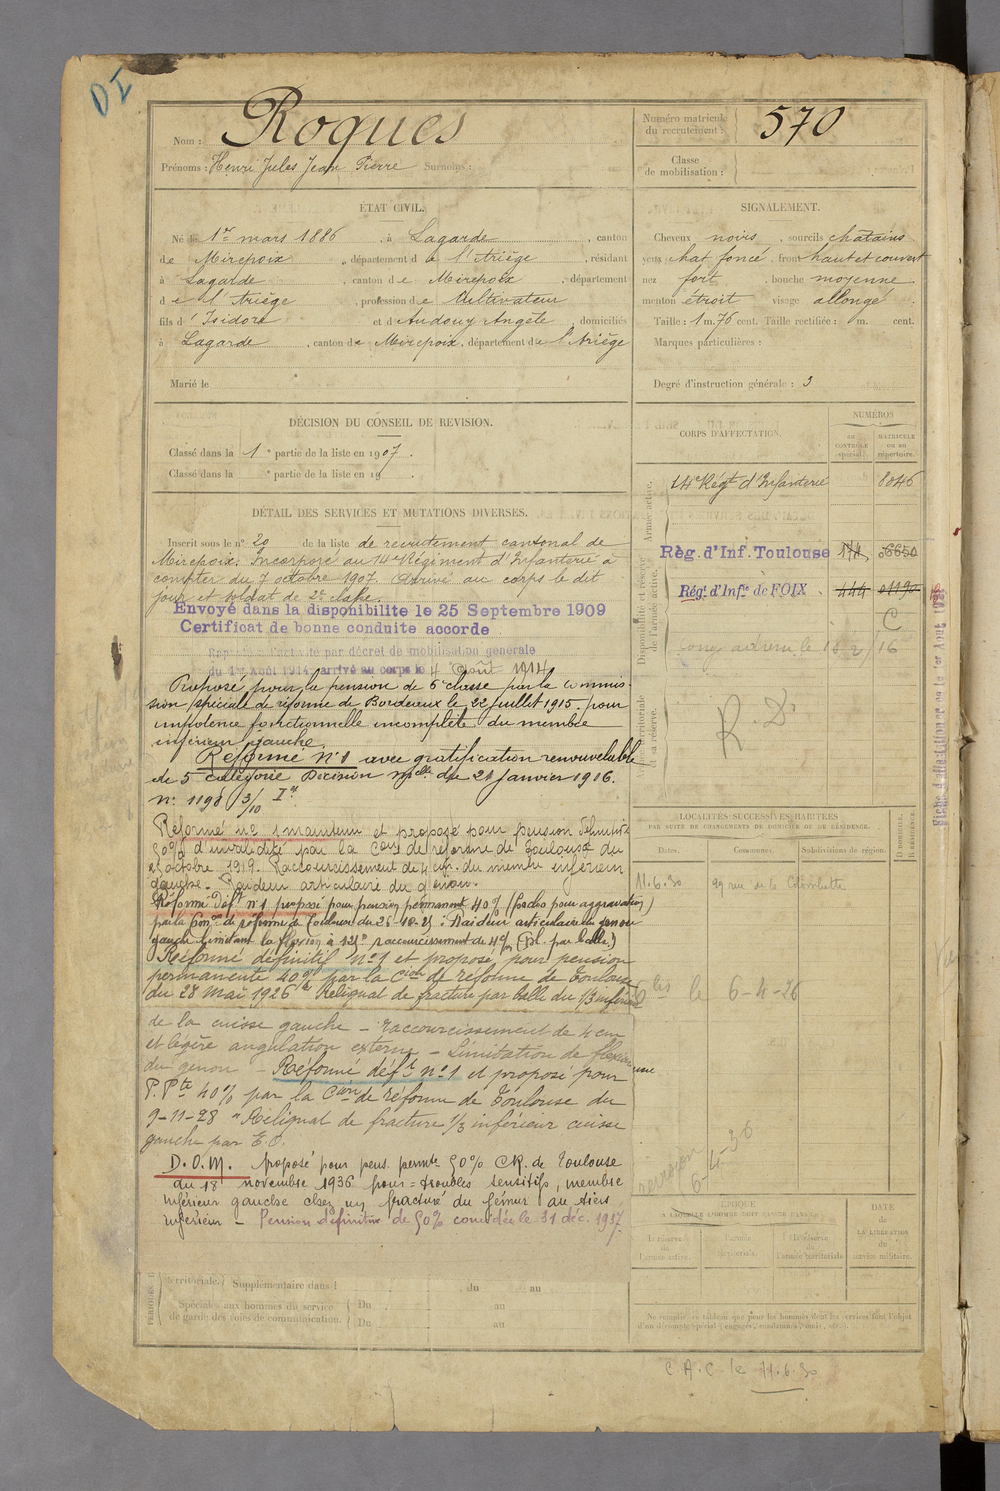 DI
Nom : Roques
Prénoms : Henri Jules Jean Pierre Surnoms :
Numéro matricule du recrutement : 570
Classe de mobilisation :
ÉTAT CIVIL.
Né le 1er mars 1886, à Lagarde, canton
de Mirepoix, département de l'Ariège, résidant
à Lagarde, canton de Mirepoix, département
de l'Ariège, profession de Cultivateur
fils d'Isidore et d'Audouy Angèle, domiciliés
à Lagarde, canton de Mirepoix, département de l'Ariège
Marié le
SIGNALEMENT.
Cheveux noirs, sourcils chatains
yeux chat foncé, front haut et couvert
nez fort, bouche moyenne
menton étroit visage allongé
Taille : 1 m. 76 cent. Taille rectifiée : m. cent.
Marques particulières :
Degré d'instruction générale : 3
DÉCISION DU CONSEIL DE REVISION.
Classé dans la 1e partie de la liste en 1907.
Classé dans la e partie de la liste en 19 .
CORPS D'AFFECTATION.
NUMÉROS
AU CONTRÔLE spécial.
MATRICULE OU AU répertoire.
Armée active.
14e Régt d'Infanterie 8046
Disponibilité et réserve de l'armée active.
Règ. d'Inf. Toulouse
Régt. d'Infie de FOIX 444 01190
C
R.D.
DÉTAIL DES SERVICES ET MUTATIONS DIVERSES.
Inscrit sous le n° 20 de la liste de recrutement cantonal de
Mirepoix. Incorporé au 14e Régiment d'Infanterie à
compter du 7 octobre 1907. Arrivé au corps le dit
jour et soldat de 2e classe.
Envoyé dans la disponibilite le 25 Septembre 1909
Certificat de bonne conduite accorde
Rappelé à l'activité par décret de mobilisation générale
du 1er Août 1914 arrivé au corps le 4 Août 1914
Proposé pour la pension de 6e classe par la commis-
sion spéciale de réforme de Bordeaux le 22 juillet 1915 pour
impotence fonctionnelle incomplète du membre
inférieur gauche.
Réformé N°1 avec gratification renouvelable
de 5e catégorie Décision mlle du 21 Janvier 1916.
n° 1198 3/10 I
Réformé n° 1 maintenu et proposé pour pension définitive
50% d'invalidité par la Con de réforme de Toulouse du
octobre 1919. Raccourcissement de 4 cm. du membre inférieur
gauche. Raideur articulaire du genou.
Réformé Déft n°1 proposé pour pension permanent 40% (poche pour aggravation)
par la Con de réforme de Toulouse du 26-10-21 : Raideur articulaire du genou
gauche limitant la flexion à raccourcissement de 4 cm (Bl. par balle)
Réformé définitif N°1 et proposé pour pension
permanente 40% par la Cion de réforme de Toulouse
du 28 Mai 1926 Reliquat de fracture par balle du 1/3 inférieur
de la cuisse gauche - raccourcissement de 4 cm
et légère angulation externe - Limitation de flexion
du genou - Réformé déft n°1 et proposé pour
P. Pte 40% par la Cion de réforme de Toulouse du
9-11-28 " Reliquat de fracture 1/3 inférieur cuisse
gauche par E.O.
D.O.M. proposé pour pens. permte 50% CR. de Toulouse
du 18 novembre 1936 pour = troubles sensitifs, membre
inférieur gauche chez un fracturé du fémur au tiers
inférieur - Pension définitive de 50% concédée le 31 déc. 1937.
LOCALITÉS SUCCESSIVES HABITÉES
PAR SUITE DE CHANGEMENTS DE DOMICILE OU DE RÉSIDENCE.
Dates. Communes. Subdivisions de région. D DOMICILE. R RÉSIDENCE.
11.6.30 99 rue de la Colombette
le 6-4-26
ÉPOQUE
DATE de LA LIBÉRATION du service militaire.
territoriale.) Supplémentaire dans l du au
Spéciales aux hommes du service de garde des voies de communication.
Du au
Du au
Ne remplir ce tableau que pour les hommes dont les services font l'objet
d'un décompte spécial (engagés, condamnés, omis, etc.).
C.A.C. le 11.6.30